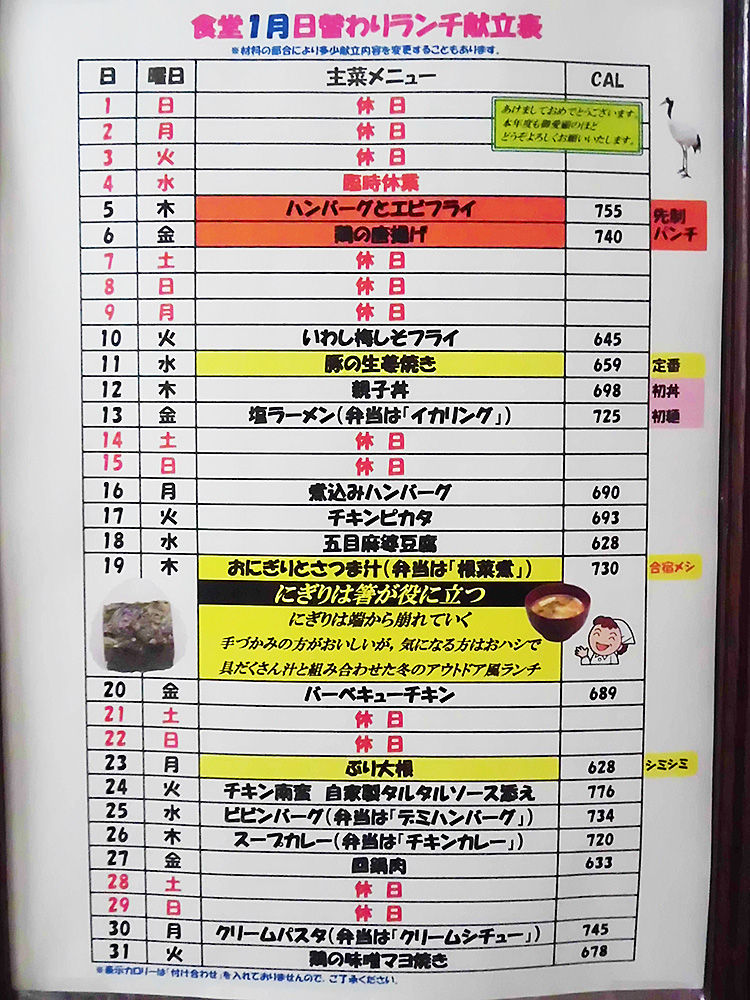 食堂1月日替わりランチ献立表
※材料の都合により多少献立内容を変更することもあります。
日 曜日 主菜メニュー CAL
1 日 休日
2 月 休日
3 火 休日
あけましておめでとうございます。
本年度も御愛顧のほど
どうぞよろしくお願いいたします。
4 水 臨時休業
5 木 ハンバーグとエビフライ 755
6 金 鶏の唐揚げ 740
先制
パンチ
7 土 休日
8 日 休日
9 月 休日
10 火 いわし梅しそフライ 645
11 水 豚の生姜焼き 659 定番
12 木 親子丼 698 初丼
13 金 塩ラーメン(弁当は「イカリング」) 725 初麺
14 土 休日
15 日 休日
16 月 煮込みハンバーグ 690
17 火 チキンピカタ 693
18 水 五目麻婆豆腐 628
19 木 おにぎりとさつま汁(弁当は「根菜煮」) 730 合宿メシ
にぎりは箸が役に立つ
にぎりは端から崩れていく
手づかみの方がおいしいが，気になる方はおハシで
具だくさん汁と組み合わせた冬のアウトドア風ランチ
20 金 バーベキューチキン 689
21 土 休日
22 日 休日
23 月 ぶり大根 628 シミシミ
24 火 チキン南蛮 自家製タルタルソース添え 776
25 水 ビビンバーグ(弁当は「デミハンバーグ」) 734
26 木 スープカレー(弁当は「チキンカレー」) 720
27 金 回鍋肉 633
28 土 休日
29 日 休日
30 月 クリームパスタ(弁当は「クリームシチュー」) 745
31 火 鶏の味噌マヨ焼き 678
※表示カロリーは「付け合わせ」を入れておりませんので、ご了承ください。